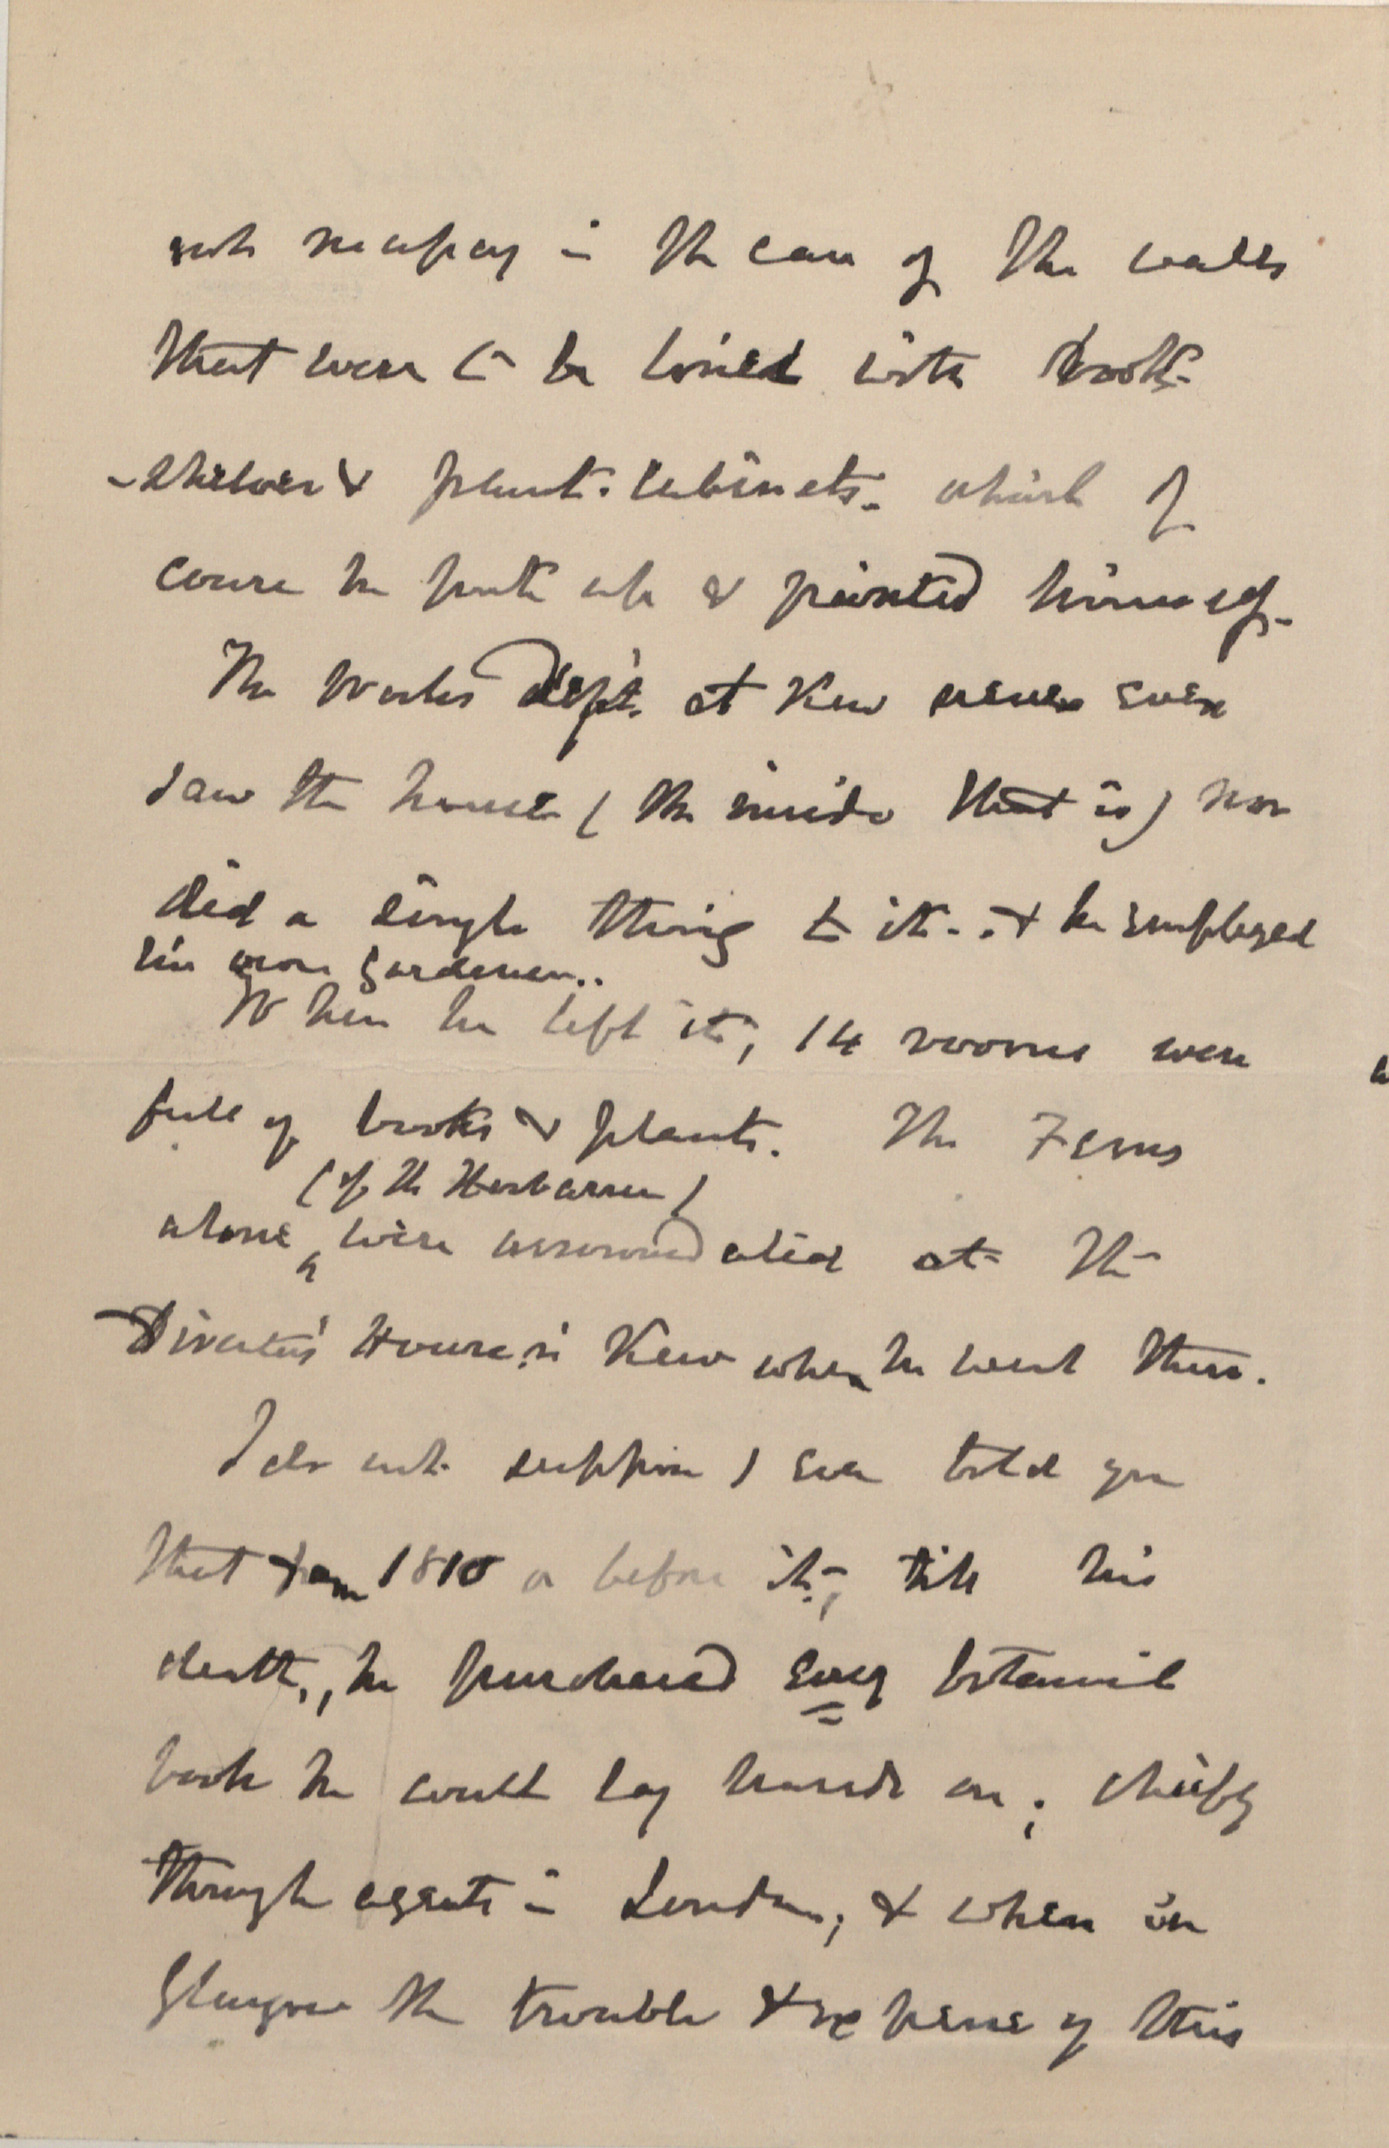 not necessary in the case of the walls
that were to be lined with book-
-shelves & plant-cabinets. which of
course he put up & painted himself.
The Works Dept. at Kew never even
saw the house (the inside that is) nor
did a single thing to it. & he employed
his own gardener..
When he left it, 14 rooms were
full of books & plants. The Ferns
(of the Herbarium)
alone were accommodated at the
Director's House in Kew when he went there.
I do not suppose I ever told you
that from 1810 or before it, till his
death, he purchased every botanical
book he could lay hands on; chiefly
through agents in London, & when in
Glasgow the trouble & expense of this